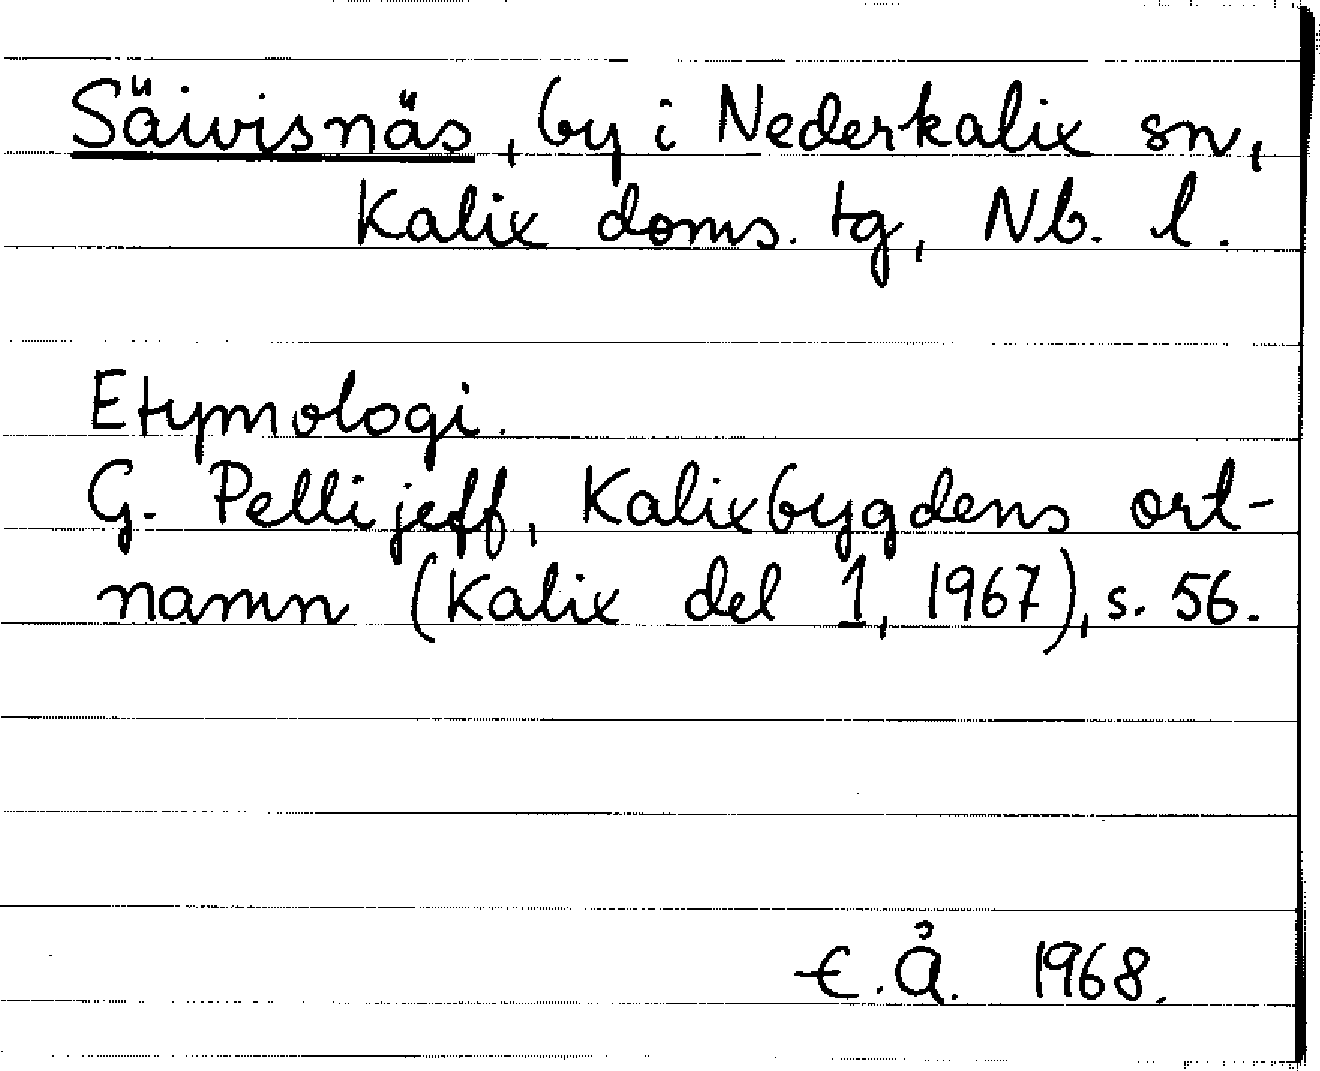 Säivisnäs, by i Nederkalix sn,
Kalix doms. tg, Nb. l.
Etymologi.
G. Pellijeff, Kalixbygdens ort-
namn (Kalix del 1, 1967), s. 56.
E. Å. 1968.